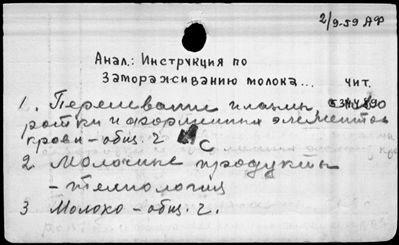 2/9-59 АФ
Анал.: Инструкция по
замораживанию молока...
чит.
1. Переливание плазмы,
ротки и форменных элементов
крови - общ. ч. С
2 Молочные продукты
- технология
3 Молоко - общ. ч.